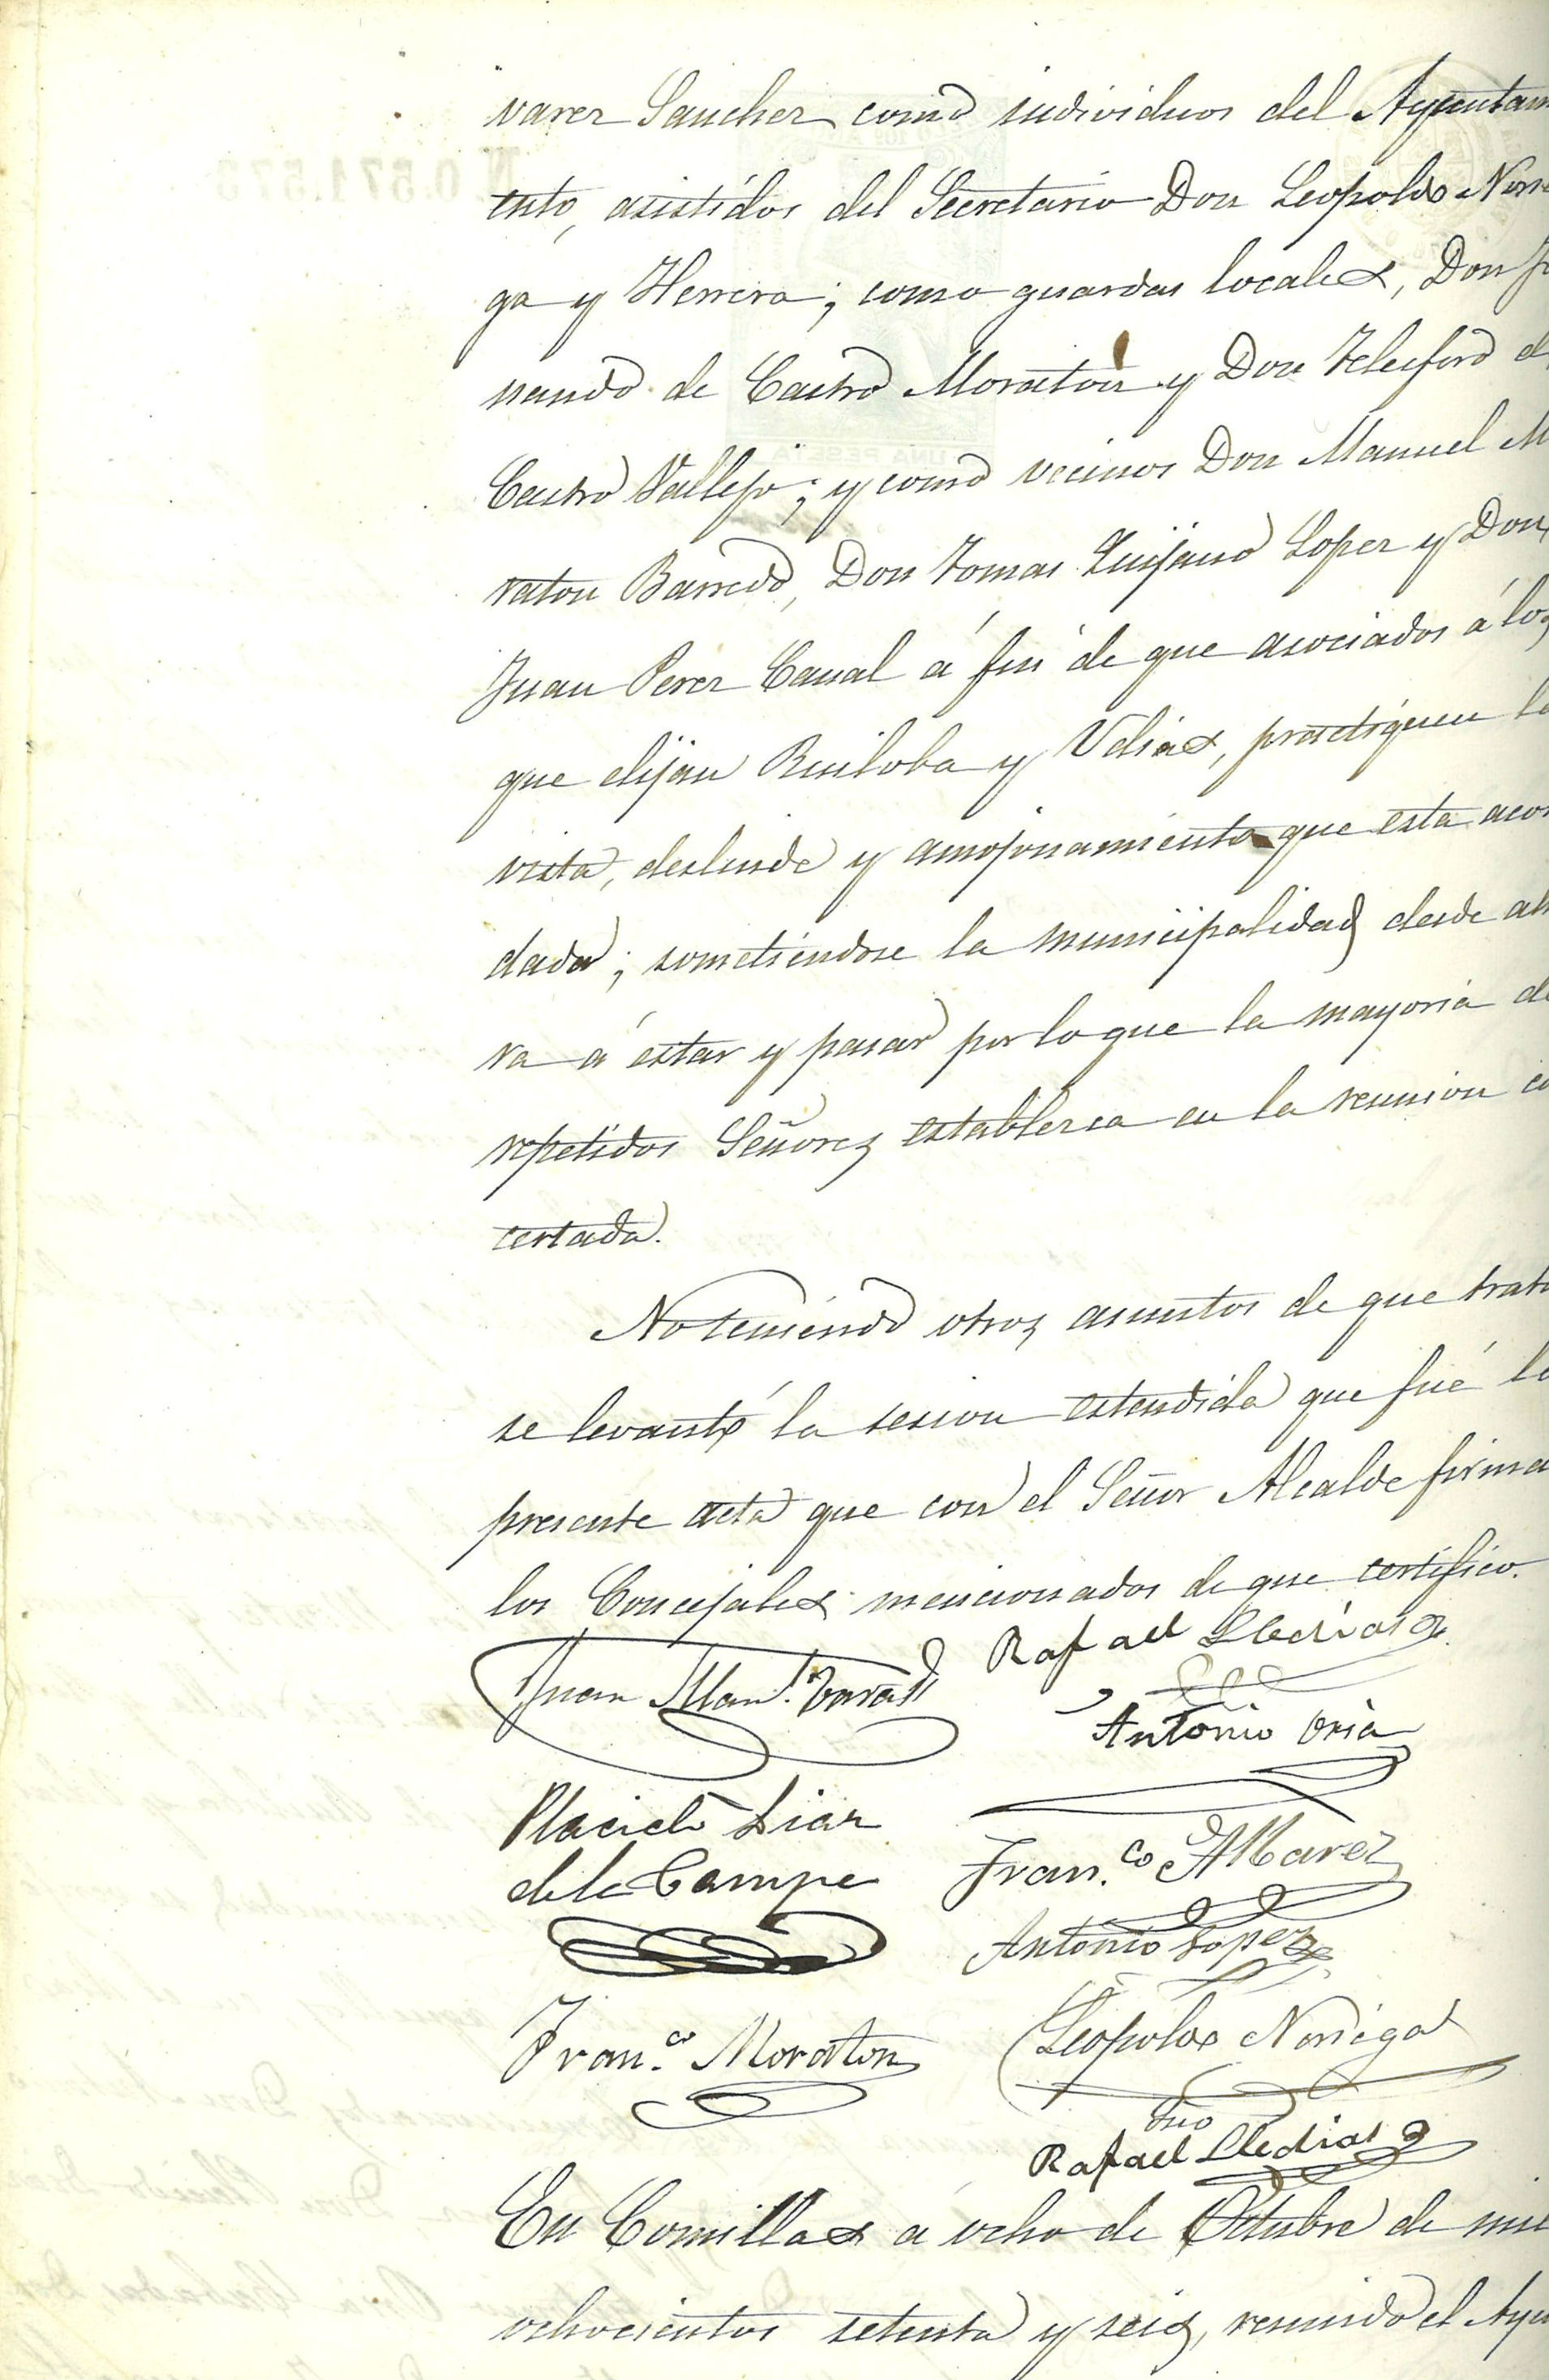 varez Sanchez como individuos del Ayuntam
ento, asistidos del Secretario Don Leopoldo Norie
ga y Herrera; como guardas locales, Don Fe
nando de Castro Moraton y Don Telesforo d
Castro Vallejo; y como vecinos Don Manuel M
raton Barredo, Don Tomas Quijano Lopez y Don
Juan Perez Canal á fin de que asociados á los
que elijan Ruiloba y Udias, practiquen la
vista, deslinde y amojonamiento que esta acor
dada; sometiendose la municipalidad desde aho
ra á estar y pasar por lo que la mayoria de
repetidos Señores establezca en la reunion con
certada.
No teniendo otros asuntos de que trata
se levantó la sesion estendida que fué la
presente acta que con el Señor Alcalde firma
los Concejales mencionados de que certifico.
Rafael Lledias
Juan Man.l
Antonio Oria
Placido Diaz
de la Campa
Fran.co Albarez
Antonio Lopez
Fran.co Moraton
Leopoldo Noriega
Srio
Rafael Lledias
En Comillas á ocho de Octubre de mil
ochocientos setenta y seis, reunido el Ayu